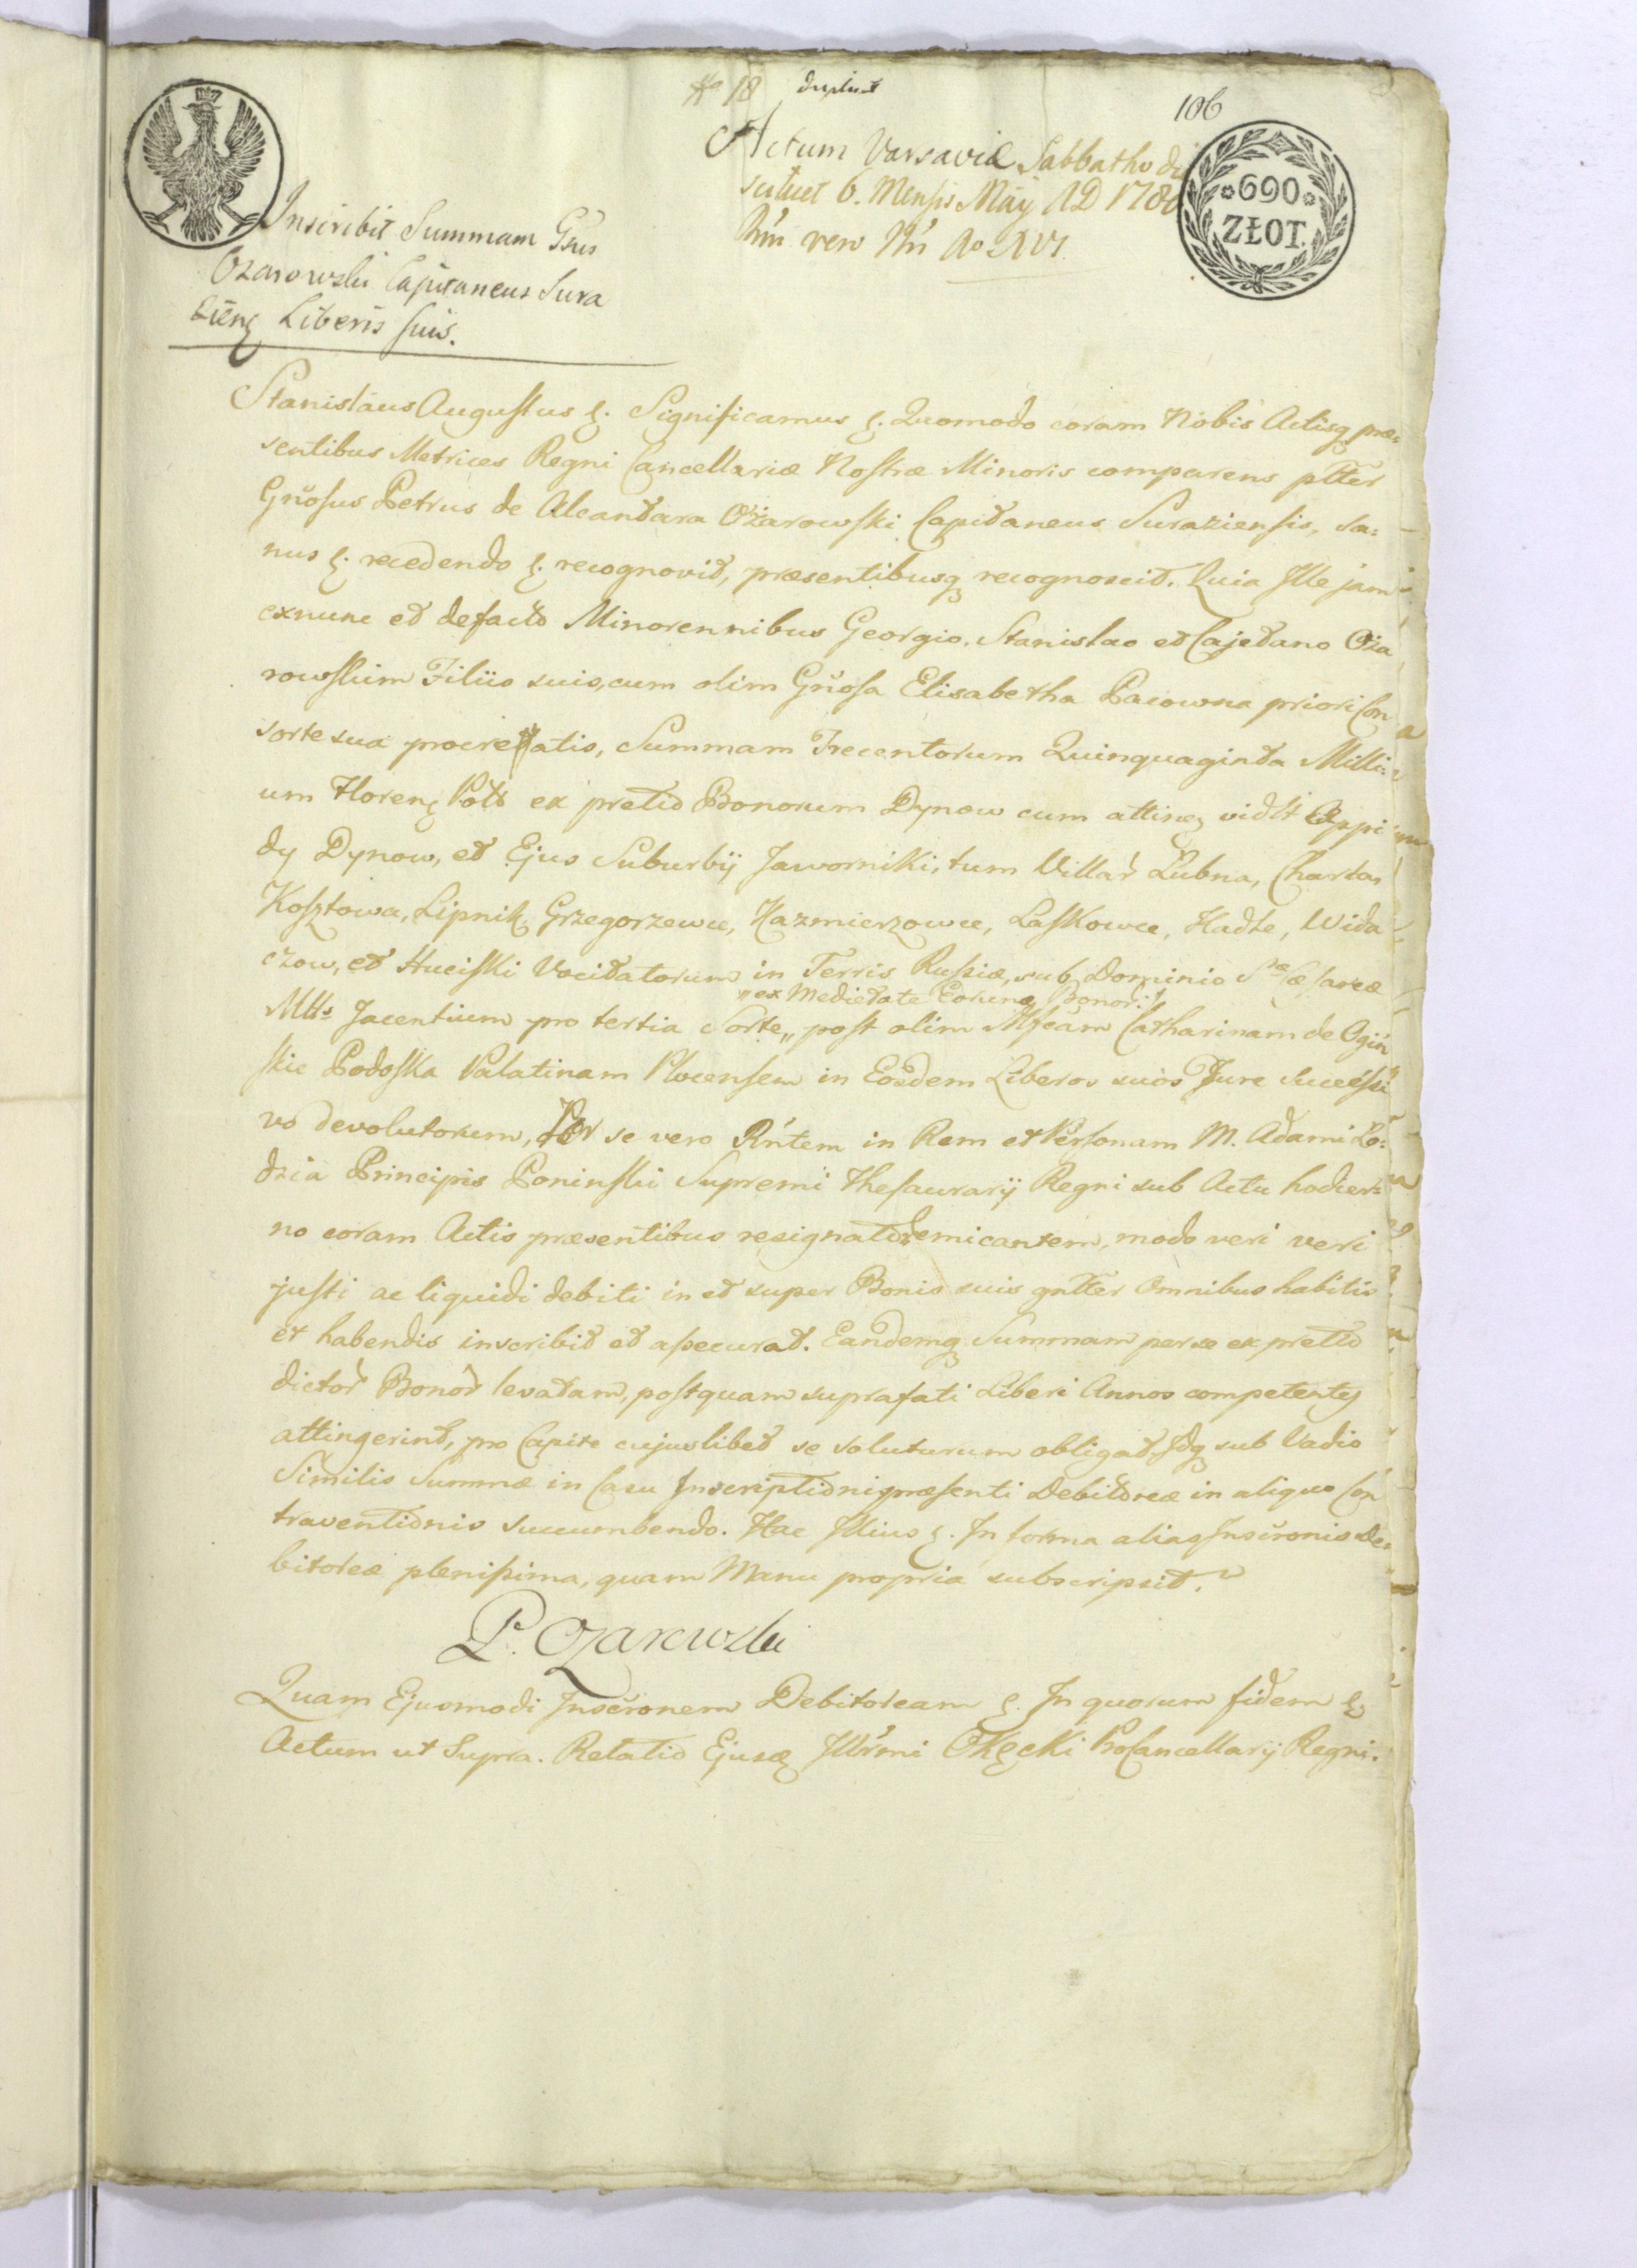 No 18 duplicat
106
Actum Varsaviæ Sabbatho die
scilicet 6. Mensis Maij AD 1780
Rñi vero Nñ Ao XVI.
690
ZŁOT.
Inscribit Summam Gsus
Ożarowski Capitaneus Sura
zien Liberis suis.
Stanislaus Augustus &. Significamus &. Quomodo coram Nobis Actisq præ=
sentibus Metrices Regni Cancellariæ Nostræ Minoris comparens pltter
Gñosus Petrus de Alcantara Ożarowski Capitaneus Suraziensis, sa=
nus &. recedendo &. recognovit, præsentibusq recognoscit. Quia Ille jam
exnunc et defacto Minorennibus Georgio, Stanislao et Cajetano Oża
rowskim Filiis suis, cum olim Gñosa Elisabetha Pacowna priori Con
sorte sua procreatis, Summam Trecentorum Quinquaginta Milli=
um Floren Poll ex pretio Bonorum Dynow cum attinen vidlt Oppi
dy Dynow, et Ejus Suburbij Jaworniki, tum Villar Lubna, Charta,
Kosztowa, Lipnik, Grzegorzewce, Kazmierzowce, Laskowce, Hadle, Wida
czow, et Huciski Vocitatorum in Terris Russiæ, sub Dominio Sæ Cæsareæ
"ex Medietate Eorunq Bonor:
Mtts Jacentium pro tertia Sorte,, post olim Mfcam Catharinam de Ogin
skie Podoska Palatinam Plocensem in Eosdem Liberos suos Jure Successi
vo devolutorum, Per se vero Rñtem in Rem et Personam M. Adami Lo=
dzia Principis Poninski Supremi Thesaurarij Regni sub Actu hodier=
no coram Actis præsentibus resignator emicantem, modo veri veri
justi ac liquidi debiti in et super Bonis suis gntter Omnibus habitis
et habendis inscribit et assecurat. Eandemq Summam per se ex pretio
dictor Bonor levatam, postquam suprafati Liberi Annos competentes
attingerint, pro Capite cujuslibet se soluturum obligat, Idq sub Vadio
Similis Summæ in Casu Inscriptioni præsenti Debitoreæ in aliquo Con
traventionis succumbendo. Hac Illius &. In forma alias Inscronis De=
bitoreæ plenissima, quam Manu propria subscripsit.
P. Ożarowski
Quam Ejusmodi Inscronem Debitoream &. In quorum fidem &
Actum ut Supra. Relatio Ejusq Illrmi Okęcki ProCancellarij Regni.